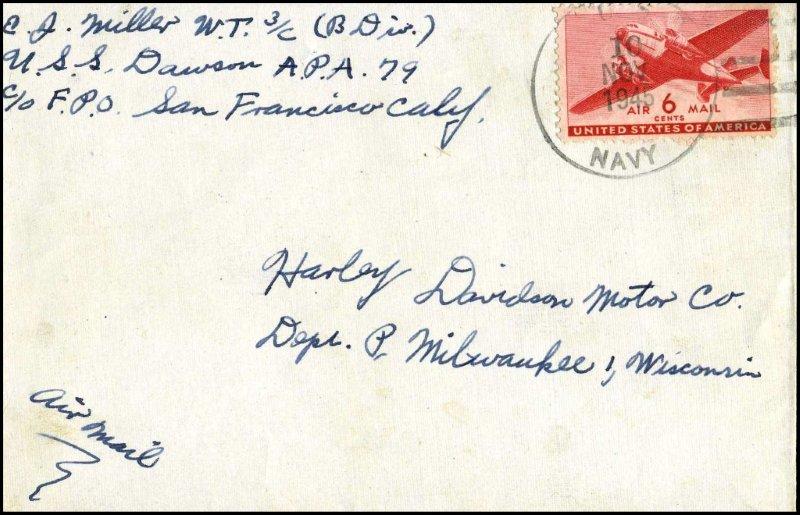 E. J. Miller W.T. 3/c (B Div.)
U.S.S. Dawson A.P.A. 79
c/o F.P.O. San Francisco Calif.
10
NOV
1945
NAVY
AIR 6 MAIL
CENTS
UNITED STATES OF AMERICA
Harley Davidson Motor Co.
Dept. P. Milwaukee 1, Wisconsin
Air Mail